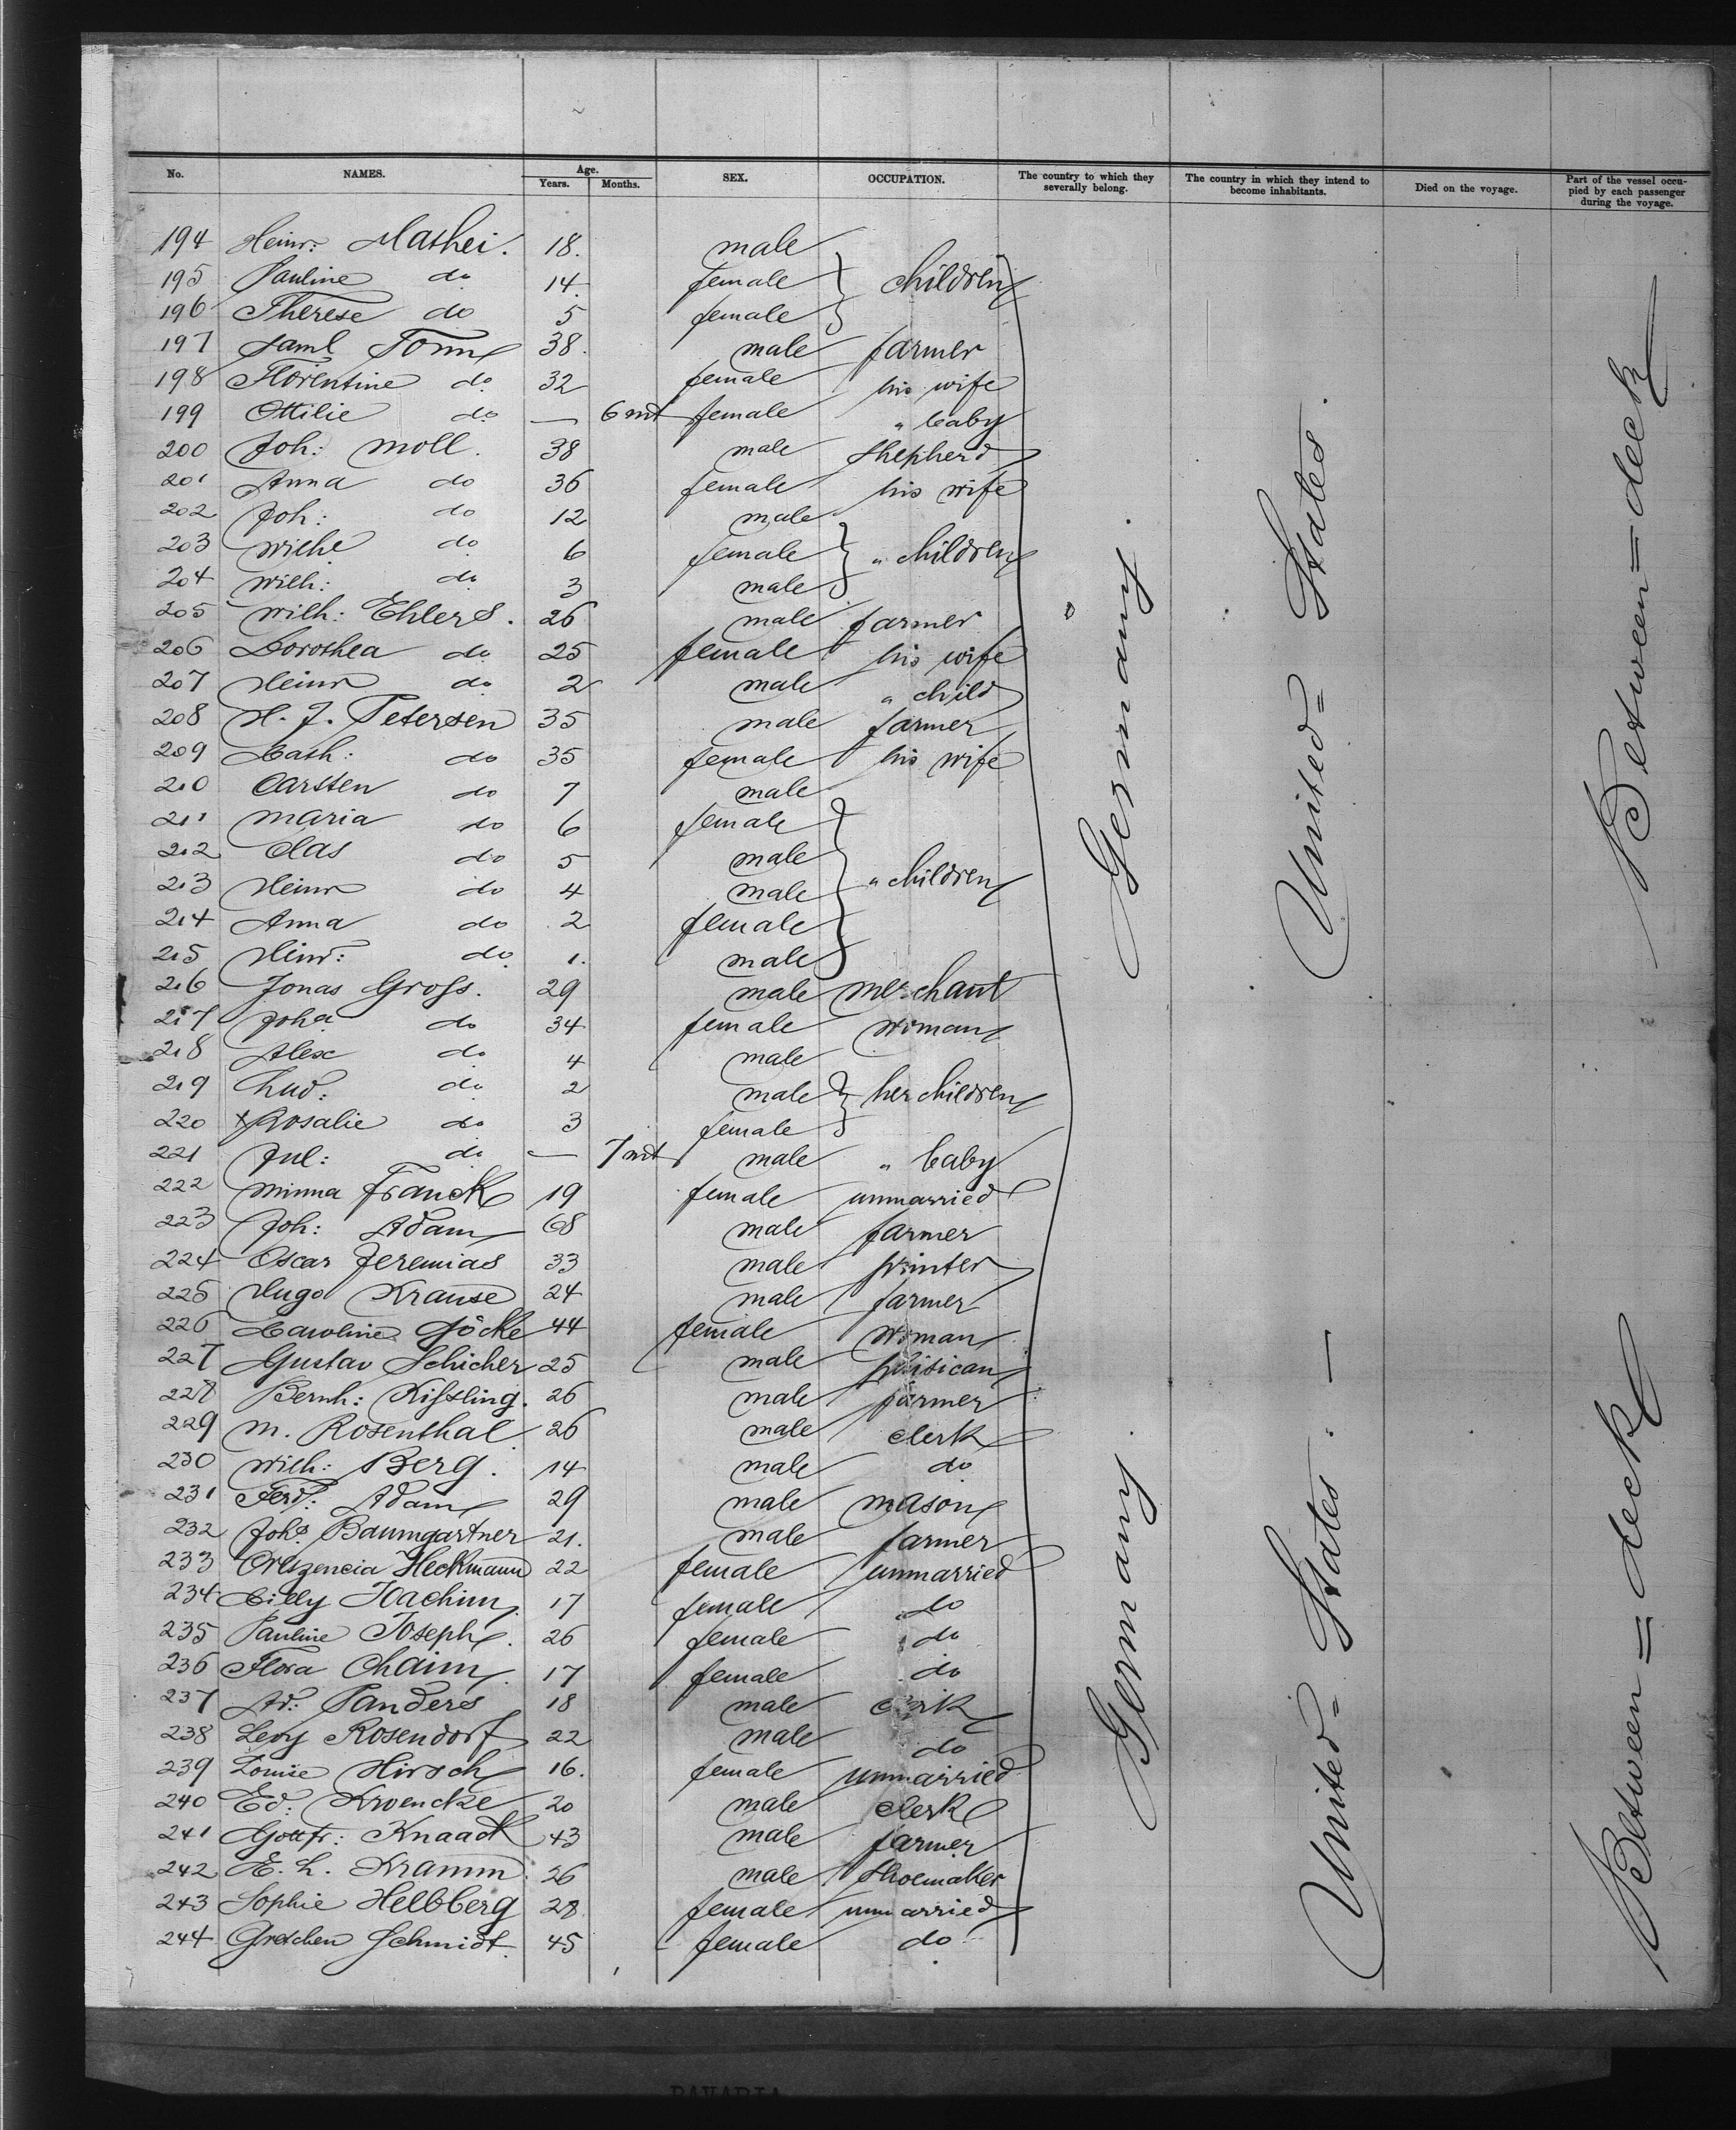 No. NAMES. Age. Years. Months. SEX. OCCUPATION. The country to which they severally belong. The country in which they intend to become inhabitants. Died on the voyage. Part of the vessel occupied by each passenger during the voyage.
194 Heinr: Mathei. 18. male
195 Pauline do 14. female children
196 Therese do 5 female
197 Saml Tonn 38. male farmer
198 Florentine do. 32 female his wife
199 Ottilie do. — 6 mt female " baby
200 Joh: Moll. 38 male shepherd
201 Anna do 36 female his wife
202 Joh: do 12 male
203 Wilhe do 6 female " children
204 Wilh: do 3 male
205 Wilh: Ehlers. 26 male farmer
206 Dorothea do. 25 female his wife
207 Heinr do. 2 male " child
208 H. J. Petersen 35 male farmer
209 Cath: do 35 female his wife
210 Carsten do 7 male
211 Maria do 6 female
212 Clas do 5 male
213 Heinr do 4 male " children
214 Anna do 2 female
215 Heinr: do. 1. male
216 Jonas Gross. 29 male merchant
217 Joha do 34 female woman
218 Alex do 4 male
219 Lud: do 2 male her children
220 x Rosalie do 3 female
221 Jul: do — 7 mt male " baby
222 Minna Franck 19 female unmarried
223 Joh: Adam 68 male farmer
224 Oscar Jeremias 33 male printer
225 Hugo Krause 24 male farmer
226 Caroline Göcke 44 female woman
227 Gustav Schicher 25 male
228 Bernh: Kissling. 26 male farmer
229 M. Rosenthal 26 male clerk
230 Wilh: Berg. 14 male do
231 Ferd: Adam 29 male mason
232 Johs Baumgartner 21. male farmer
233 Heckmann 22 female unmarried
234 Cilly Joachim 17 female do
235 Pauline Joseph. 26 female do
236 Flora Chaim 17 female do
237 Ad: Sanders 18 male clerk
238 Levy Rosendorf 22 male do
239 Louise Hirsch 16. female unmarried
240 Ed: Kroencke 20 male clerk
241 Gottfr: Knaack 43 male farmer
242 E. L. Kramm. 26 male shoemaker
243 Sophie Hellberg 28 female unmarried
244 Gretchen Schmidt. 45 female do
Germany.
United= States.
Between=deck
Germany.
United= States. —
Between=deck
BAVARIA